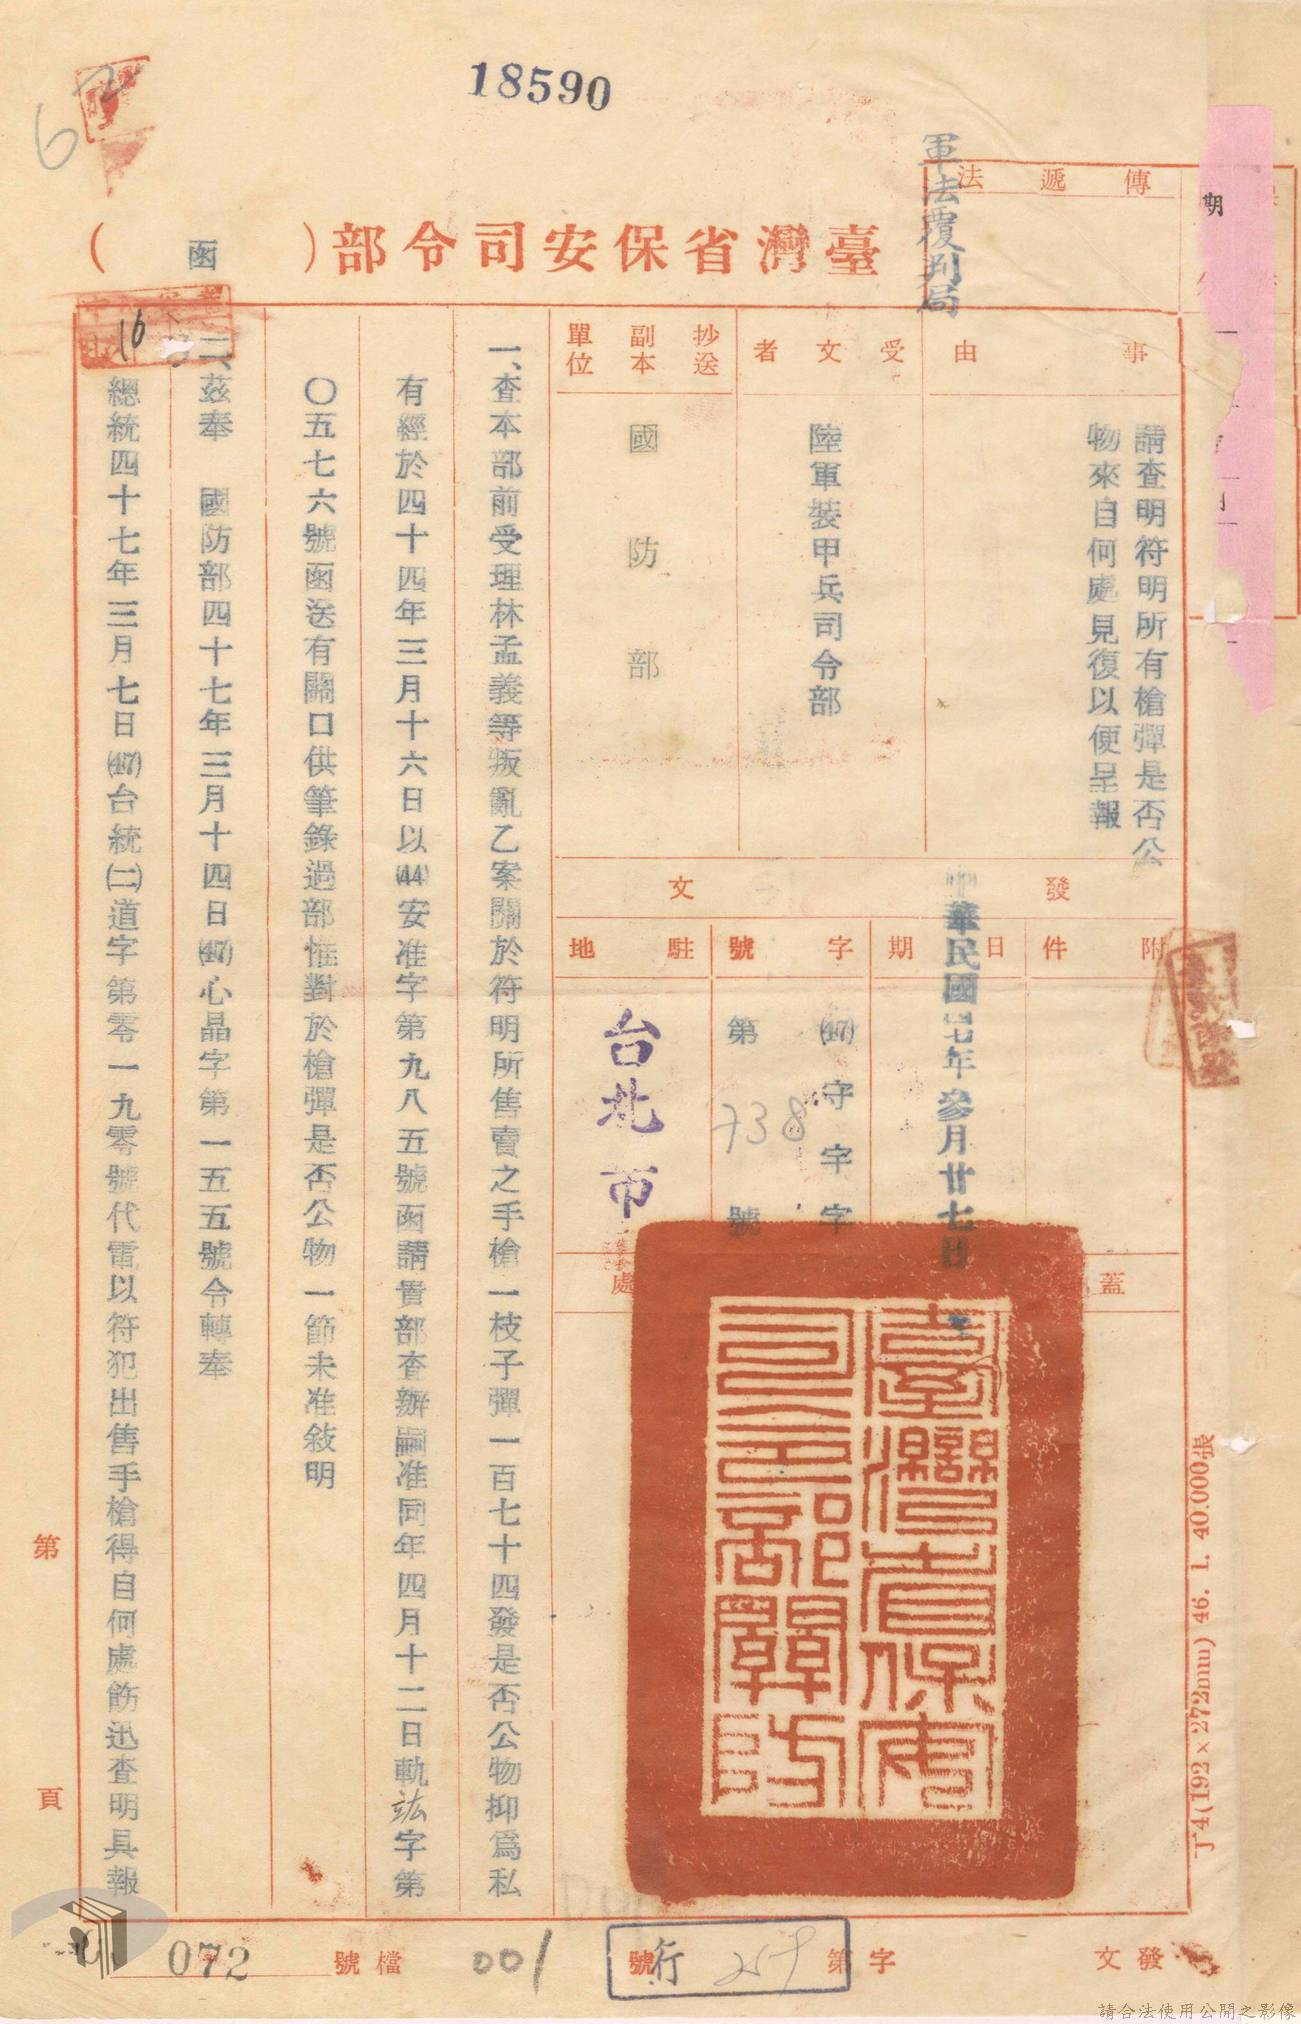 18590
軍法覆判局
傳遞法
期
臺灣省保安司令部(函)
事由
請查明符明所有槍彈是否公
物來自何處見復以便呈報
受文者
陸軍裝甲兵司令部
抄送
副本
單位
國防部
發文
附件
日期
中華民國四七年參月廿七日
字號
(47)守字字
第738號
駐地
台北市
蓋
處
臺灣省保安
司令部關防
一、查本部前受理林孟義等叛亂乙案關於符明所售賣之手槍一枝子彈一百七十四發是否公物抑為私
有經於四十四年三月十六日以(44)安准字第九八五號函請貴部查辦嗣准同年四月十二日軌訧字第
〇五七六號函送有關口供筆錄過部惟對於槍彈是否公物一節未准敍明
二、茲奉 國防部四十七年三月十四日(47)心晶字第一五五號令轉奉
總統四十七年三月七日(47)台統(二)道字第零一九零號代電以符犯出售手槍得自何處飭迅查明具報
16
第 頁
發文 字第 259 號
行
001
檔號
072
丁4(192×272mm) 46. 1. 40.000張
請合法使用公開之影像